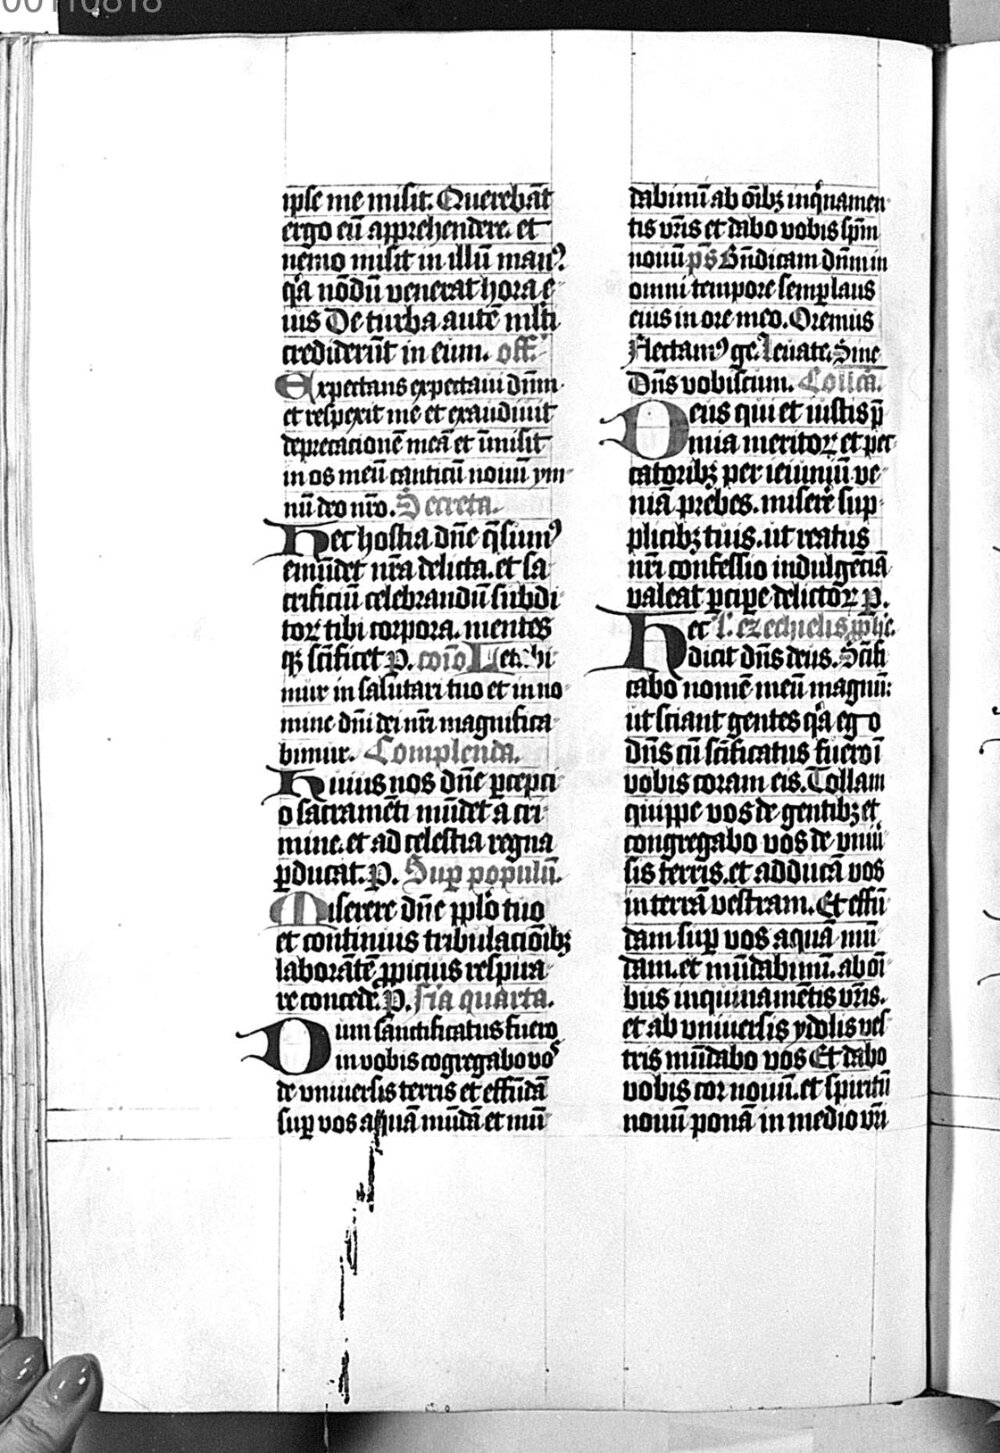 00110818
ipse me misit. Querebāt
ergo eū apprehendere. et
nemo misit in illū manꝰ.
qͣa nōdū venerat hora e
ius De turba autē mlti
crediderūt in eum. off.
Expectans expectaui dn̄m
et respexit me et exaudiuit
deprecacionē meā et īmisit
in os meū canticū nouū ym
nū deo nr̄o. Secreta.
Hec hostia dn̄e q̄sumꝰ
emūdet nr̄a delicta. et sa
crificiū celebrandū subdi
toꝝ tibi corpora. mentes
qꝫ sc̄ificet P. coīo Leta bi
mur in salutari tuo et in no
mine dn̄i dei nr̄i magnifica
bimur. Complenda.
Huius nos dn̄e ꝑcepci
o sacramēti mūdet a cri
mine. et ad celestia regna
ꝑducat. P. Suꝑ populū.
Miserere dn̄e pplo tuo
et continuis tribulacioībꝫ
laborātē ꝓpicius respira
re concede. P. Fīa quarta.
Dum sanctificatus fuero
in vobis cogregabo vos
de vniuersis terris et effūdā
suꝑ vos aquā mūdā et mū
dabimī ab oībꝫ inqͥnamen
tis vr̄is et dabo vobis spm̄
nouū ps̄ Bn̄dicam dn̄m in
omni tempore semꝑ laus
eius in ore meo. Oremus
Flectamꝰ ge. Leuate. Sine
Dn̄s vobiscum. Collcā.
Deus qui et iustis p̄
mia meritoꝝ et pec
catoribꝫ per ieiuniū ve
niā prebes. miserē sup
plicibꝫ tuis. ut reatus
nr̄i confessio indulgēciā
valeat ꝑcipe delictoꝝ P.
Hec l. ezechielis ꝓphe.
dicit dn̄s deus. Sc̄ifi
cabo nomē meū magnū:
ut sciant gentes qͣa ego
dn̄s cū sc̄ificatus fuero ī
vobis coram eis. Tollam
quippe vos de gentibꝫ et
congregabo vos de vniū
sis terris. et adducā vos
in terrā vestram. Et effū
dam suꝑ vos aquā mū
dam. et mūdabimī. ab oī
bus inquinamētis vr̄is.
et ab vniuersis ydolis ves
tris mūdabo vos Et dabo
vobis cor nouū. et spiritū
nouū ponā in medio vr̄i